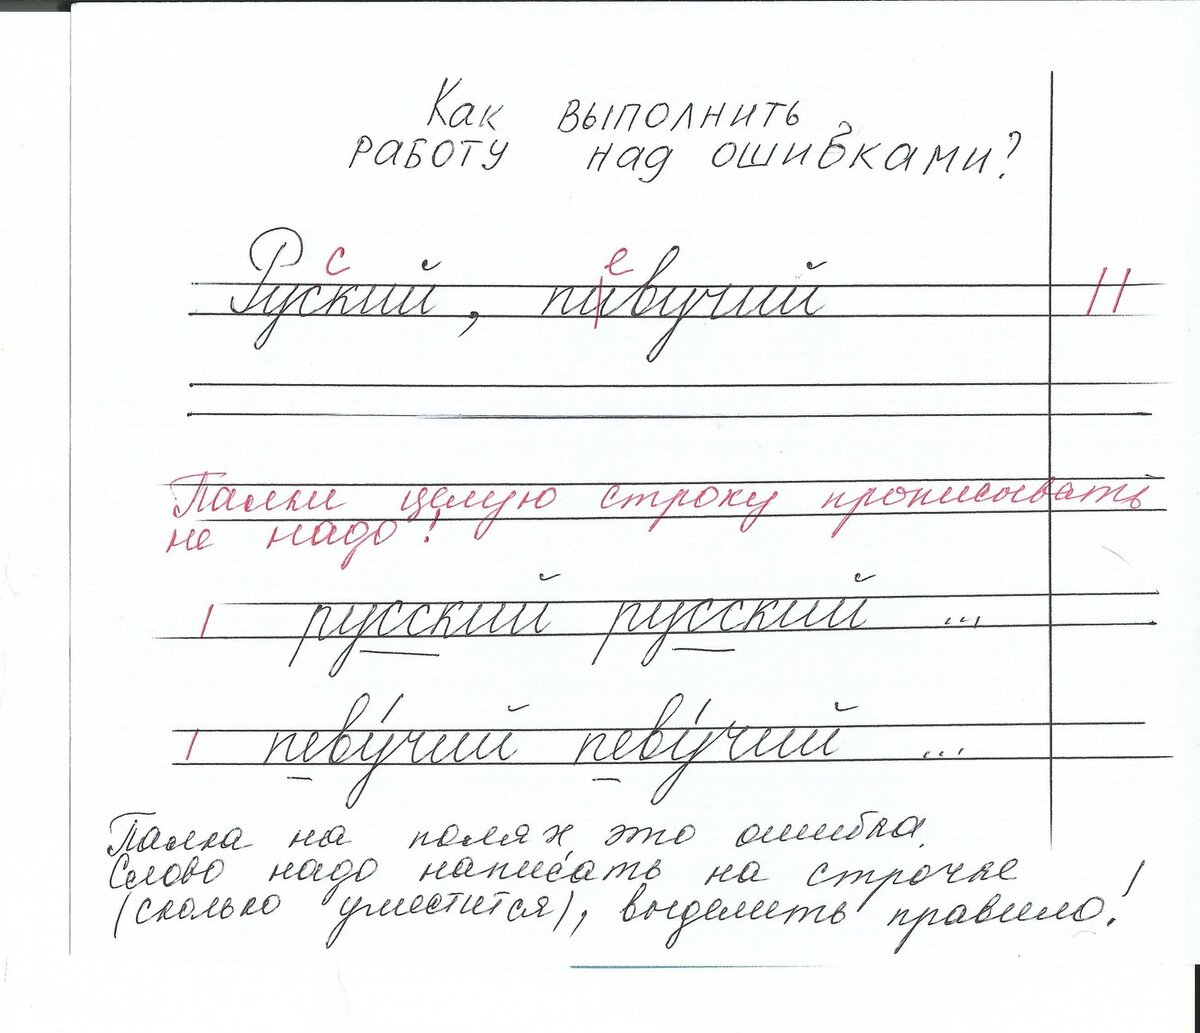 Как выполнить
работу над ошибками?
с е
Руский, пивучий II
Палки целую строку прописывать
не надо!
I русский русский ...
I певу́чий певу́чий ...
Палка на полях это ошибка.
Слово надо написать на строчке
(сколько уместится), выделить правило!